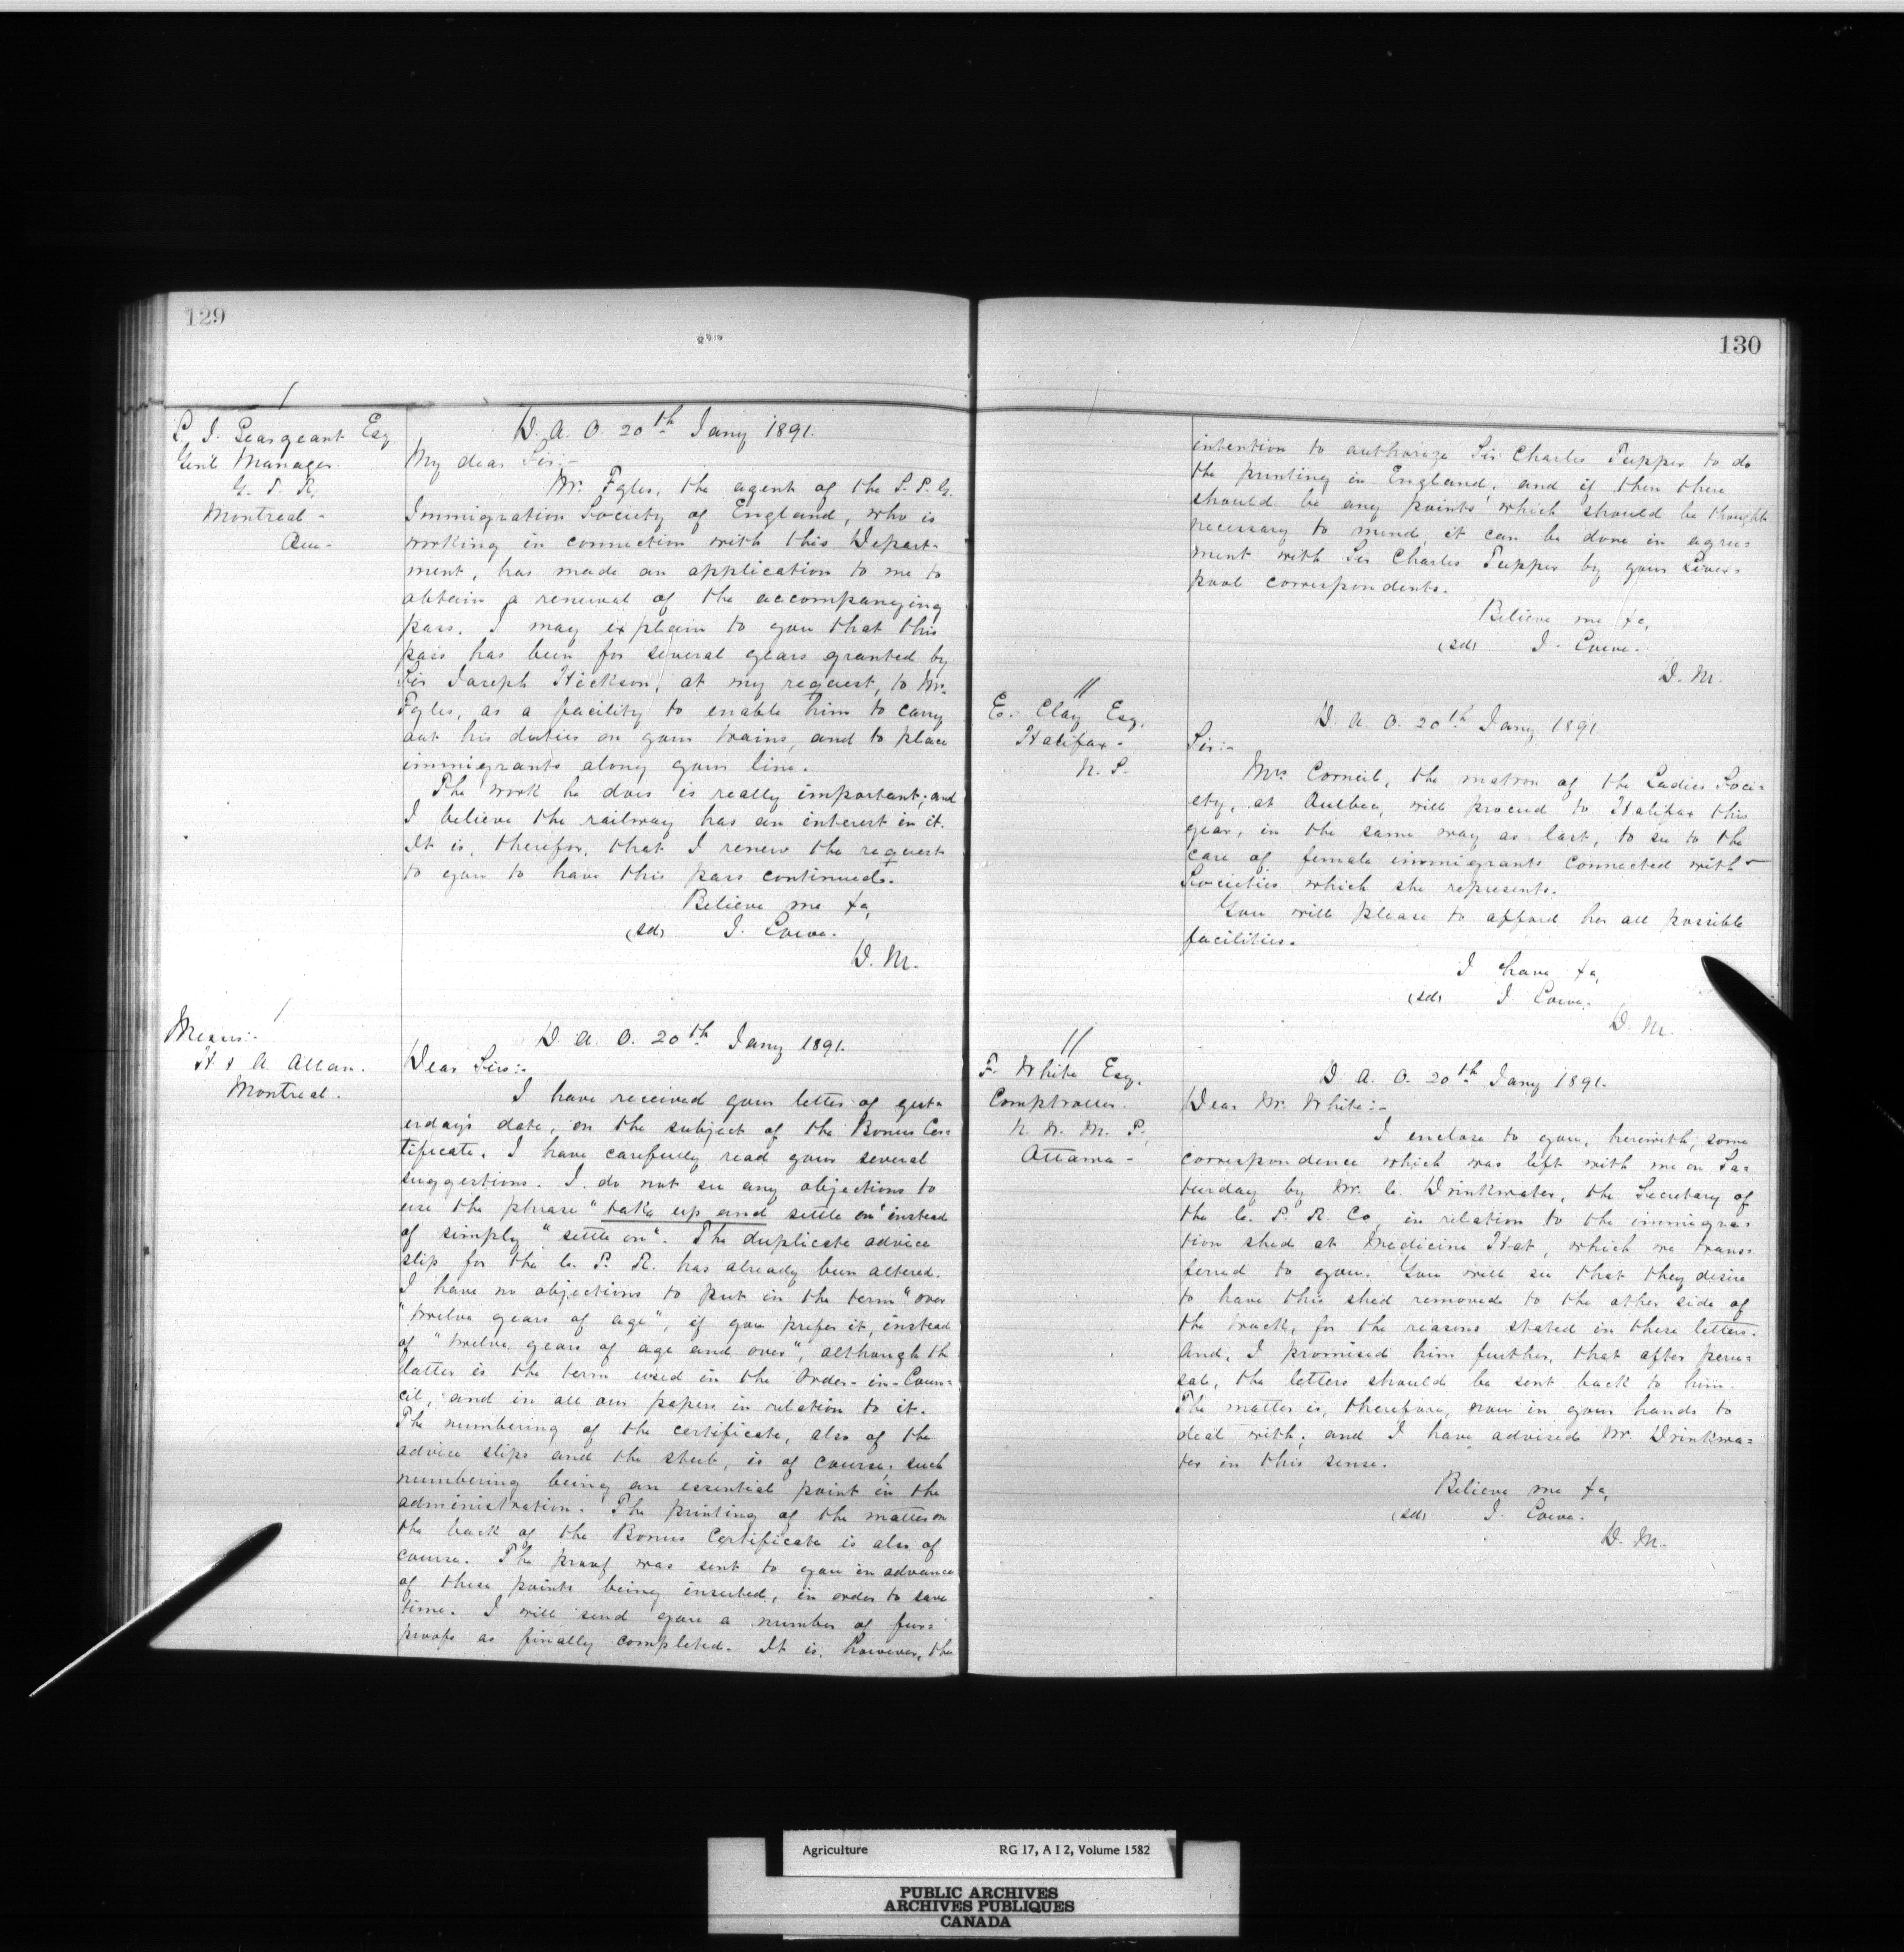 129
L. J. Seargeant Esq
Gen'l Manager.
G. T. R.
Montreal -
Que -
D. A. O. 20th Jany 1891.
My dear Sir:-
Mr. Fyles, the agent of the S. P. G.
Immigration Society of England, who is
working in connection with this Depart-
ment, has made an application to me to
obtain a renewal of the accompanying
pass. I may explain to you that this
pass has been for several years granted by
Sir Joseph Hickson, at my request, to Mr.
Fyles, as a facility to enable him to carry
out his duties on your trains, and to place
immigrants along your line.
The work he does is really important; and
I believe the railway has an interest in it.
It is, therefor, that I renew the request
to you to have this pass continued.
Believe me &c,
(sd) J. Lowe.
D. M.
Messrs:-
H. & A. Allan.
Montreal.
D. A. O. 20th Jany 1891.
Dear Sirs:-
I have received your letter of yest-
erday's date, on the subject of the Bonus Cer=
tificate. I have carefully read your several
suggestions. I do not see any objections to
use the phrase "take up and settle on" instead
of simply "settle on". The duplicate advice
slip for the C. P. R. has already been altered.
I have no objections to put in the term "over
"twelve years of age", if you prefer it, instead
of "twelve years of age and over", although the
latter is the term used in the Order-in-Coun=
cil, and in all our papers in relation to it.
The numbering of the certificate, also of the
advice slips and the stub, is of course, such
numbering being an essential point in the
administration. The printing of the matter on
the back of the Bonus Certificate is also of
course. The proof was sent to you in advance
of these points being inserted, in order to save
time. I will send you a number of fur=
proofs as finally completed. It is, however, the
130
intention to authorize Sir Charles Tupper to do
the printing in England, and if then there
should be any points which should be thought
necessary to mend, it can be done in agree=
ment with Sir Charles Tupper by your Liver=
pool correspondents.
Believe me &c,
(sd) J. Lowe.
D. M.
E. Clay Esq.
Halifax -
N. S.
D. A. O. 20th Jany 1891.
Sir:-
Mrs. Corneil, the matron of the Ladies Soci=
ety, at Quebec, will proceed to Halifax this
year, in the same way as last, to see to the
care of female immigrants connected with
Societies which she represents.
You will please to afford her all possible
facilities.
I have &c,
(sd) J. Lowe.
D. M.
F. White Esq.
Comptroller.
N. W. M. P.
Ottawa -
D. A. O. 20th Jany 1891.
Dear Mr. White:-
I enclose to you, herewith, some
correspondence which was left with me on Sa=
turday by Mr. C. Drinkwater, the Secretary of
the C. P. R. Co, in relation to the immigra=
tion shed at Medicine Hat, which we trans=
ferred to you. You will see that they desire
to have this shed removed to the other side of
the track, for the reasons stated in these letters.
And, I promised him further, that after peru=
sal, the letters should be sent back to him.
The matter is, therefore, now in your hands to
deal with; and I have advised Mr. Drinkwa=
ter in this sense.
Believe me &c,
(sd) J. Lowe.
D. M.
Agriculture RG 17, A I 2, Volume 1582
PUBLIC ARCHIVES
ARCHIVES PUBLIQUES
CANADA